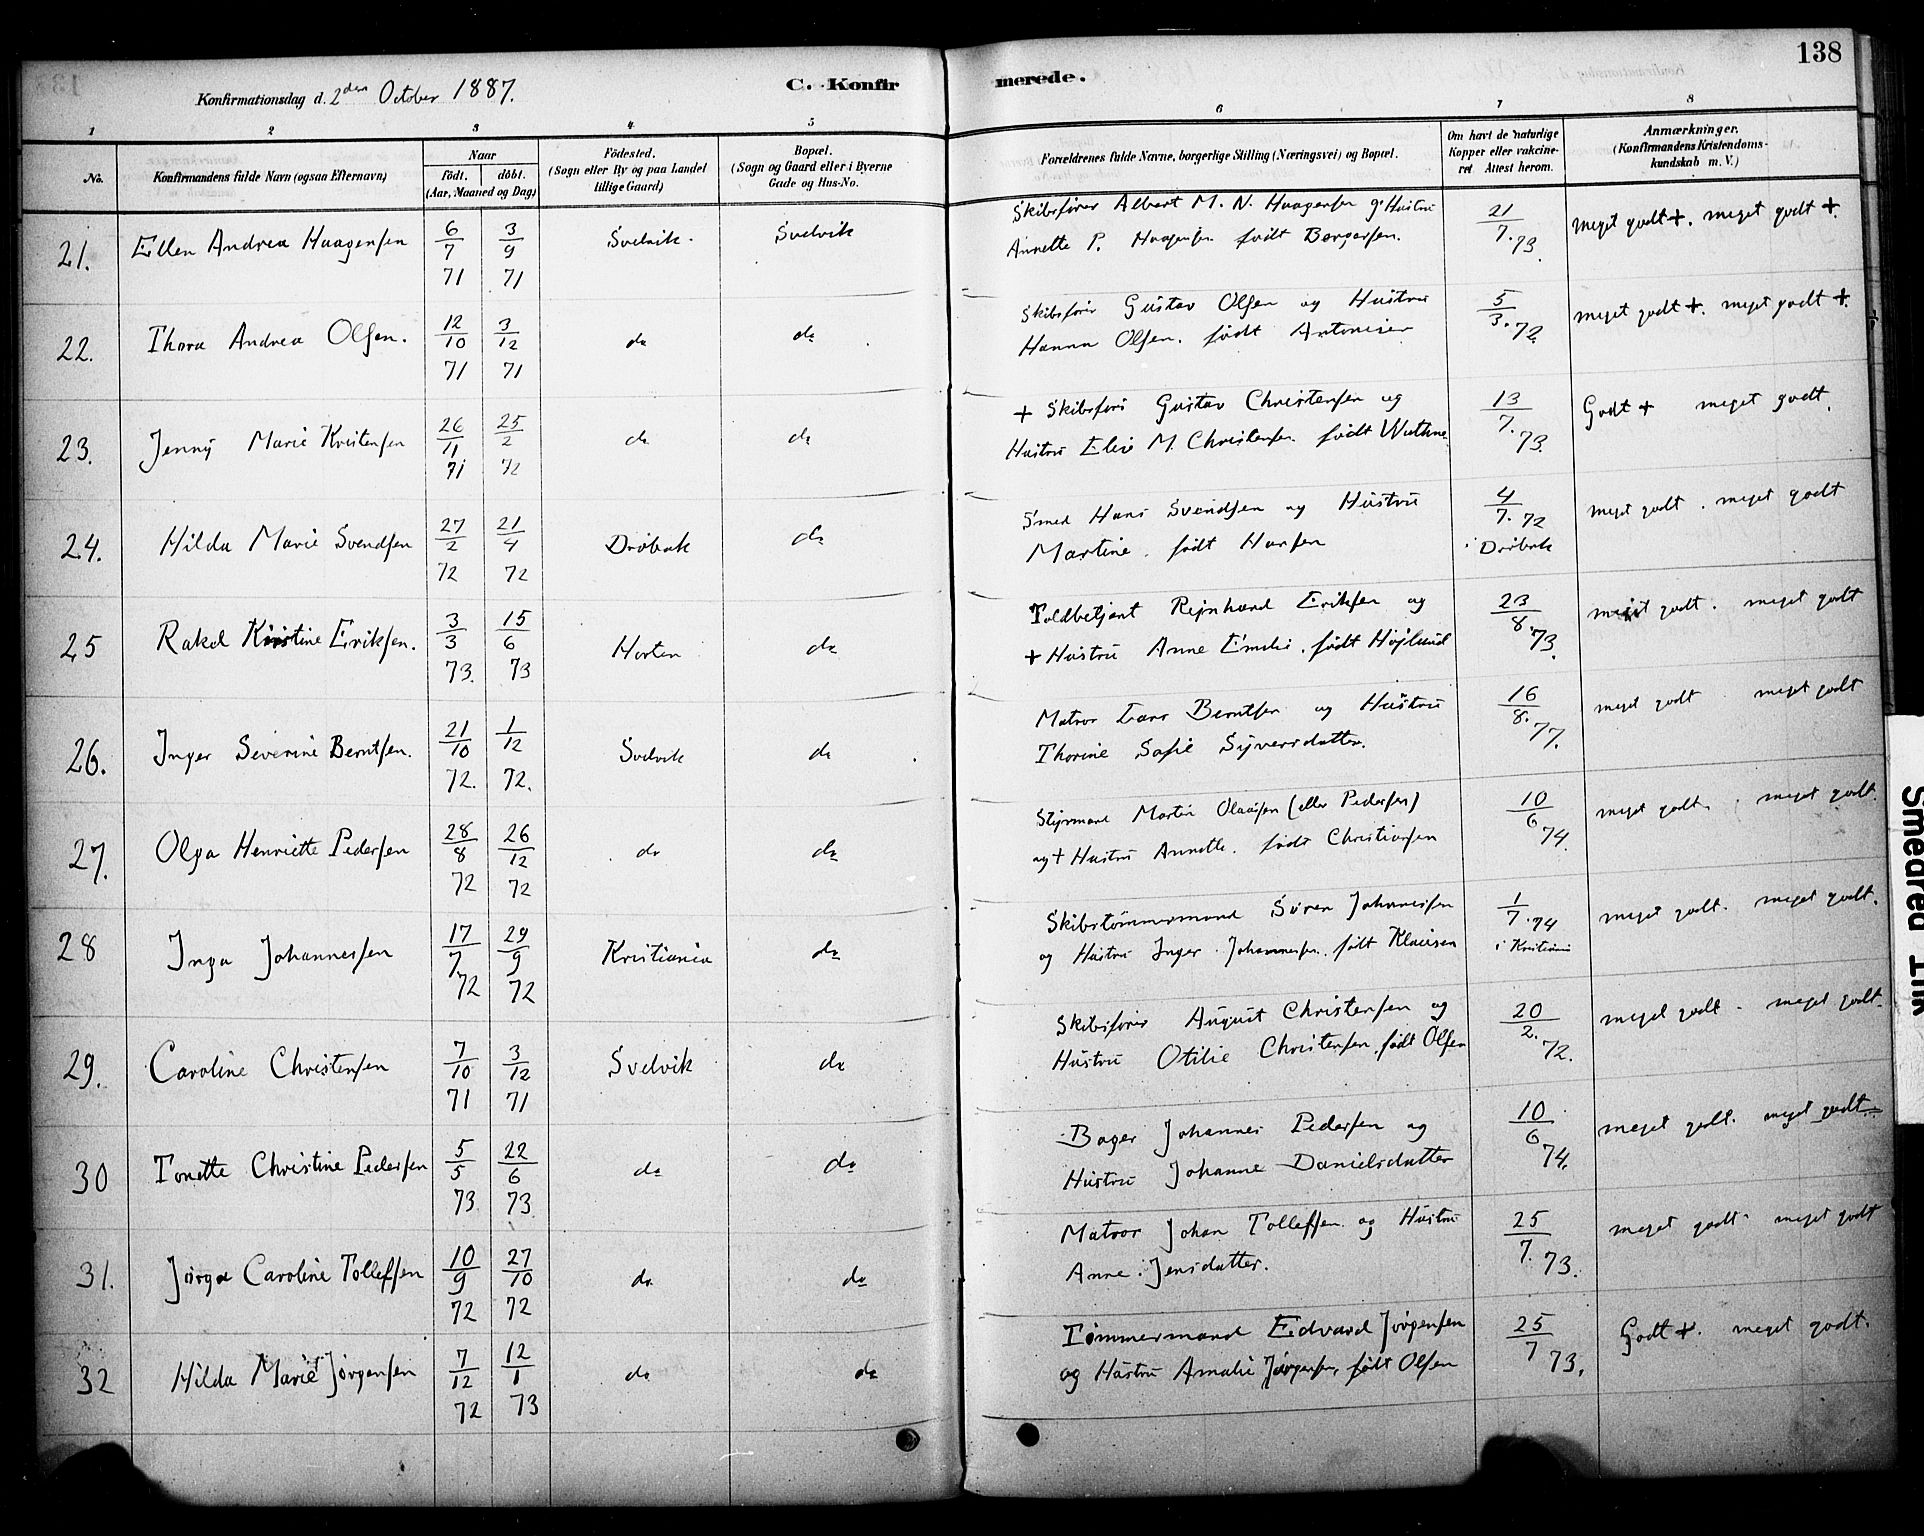 138
Konfirmationsdag d. 2den October 1887.
C. Konfirmerede.
1 2 3 4 5 6 7 8
No.
Konfirmandens fulde Navn (ogsaa Efternavn)
Naar
födt. döbt.
(Aar, Maaned og Dag)
Födested.
(Sogn eller By og paa Landet
tillige Gaard)
Bopæl.
(Sogn og Gaard eller i Byerne
Gade og Hus-No.
Forældrenes fulde Navne, borgerlige Stilling (Næringsvei) og Bopæl.
Om havt de naturlige
Kopper eller vaccine-
ret Attest herom.
Anmærkninger.
(Konfirmandens Kristendoms-
kundskab m. V.)
21. Ellen Andrea Haagensen 6/7 71 3/9 71 Svelvik. Svelvik
Skibsfører Albert M. N. Haagensen og Hustru
Annette P. Haagensen født Borgersen.
21/7. 73. meget godt +. meget godt +.
22. Thora Andrea Olsen. 12/10 71 3/12 71 do do
Skibsfører Gustav Olsen og Hustru
Hanna Olsen. født Antonisen
5/3. 72. meget godt +. meget godt +.
23. Jenny Marie Kristensen 26/11 71 25/2 72 do do
+ Skibsfører Gustav Christensen og
Hustru Elise M. Christensen født Wuthne
13/7. 73. Godt + meget godt.
24. Hilda Marie Svendsen 27/2 72 21/4 72 Drøbak do
Smed Hans Svendsen og Hustru
Martine. født Hansen
4/7. 72 i Drøbak meget godt. meget godt
25 Rakel Kristine Eriksen. 3/3 73. 15/6 73 Horten do
Toldbetjent Rejnhard Eriksen og
+ Hustru Anne Emilie. født Højlund
23/8. 73. meget godt. meget godt
26. Inger Severine Berntsen. 21/10 72. 1/12 72. Svelvik do
Matros Lars Berntsen og Hustru
Thorine Sofie Syversdatter.
16/8. 77. meget godt meget godt
27. Olga Henriette Pedersen 28/8 72 26/12 72 do do
Styrmand Martin Olausen (eller Pedersen)
og + Hustru Annette. født Christiansen
10/6 74. meget godt. meget godt.
28 Inga Johannessen 17/7 72 29/9 72 Kristiania do
Skibstømmermand Søren Johannessen
og Hustru Inger Johannessen. født Klausen
1/7. 74 i Kristiania meget godt. meget godt.
29. Caroline Christensen 7/10 71 3/12 71 Svelvik do
Skibsfører August Christensen og
Hustru Otilie Christensen. født Olsen
20/2. 72. meget godt. meget godt.
30 Tonette Christine Pedersen 5/5 73. 22/6 73. do do
Bager Johannes Pedersen og
Hustru Johanne Danielsdatter
10/6 74. meget godt. meget godt.
31. Jørga Caroline Tollefsen 10/9 72 27/10 72 do do
Matros Johan Tollefsen og Hustru
Anne Jensdatter.
25/7. 73. meget godt. meget godt
32 Hilda Marie Jørgensen 7/12 72 12/1 73 do do
Tømmermand Edvard Jørgensen
og Hustru Amalie Jørgensen, født Olsen
25/7 73. Godt +. meget godt.
Smeared Ink